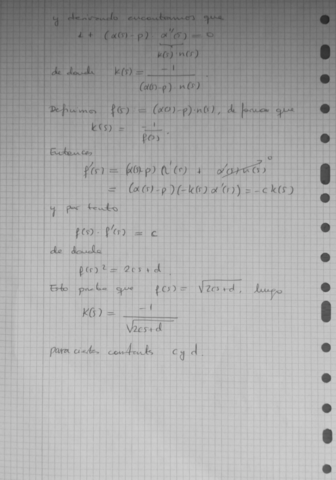 y derivando encontramos que
1 + (α(s) - p) · α''(s) = 0
k(s) · n(s)
de donde k(s) = -1 / (α(s) - p) · n(s) .
Definimos f(s) = (α(s) - p) · n(s), de forma que
k(s) = -1 / f(s) .
Entonces
f'(s) = (α(s) - p) n'(s) + α'(s) n(s) 0
= (α(s) - p) (-k(s) α'(s)) = -c k(s)
y por tanto
f(s) · f'(s) = c
de donde
f(s)² = 2cs + d .
Esto prueba que f(s) = √2cs + d , luego
k(s) = -1 / √2cs + d
para ciertas constantes c y d